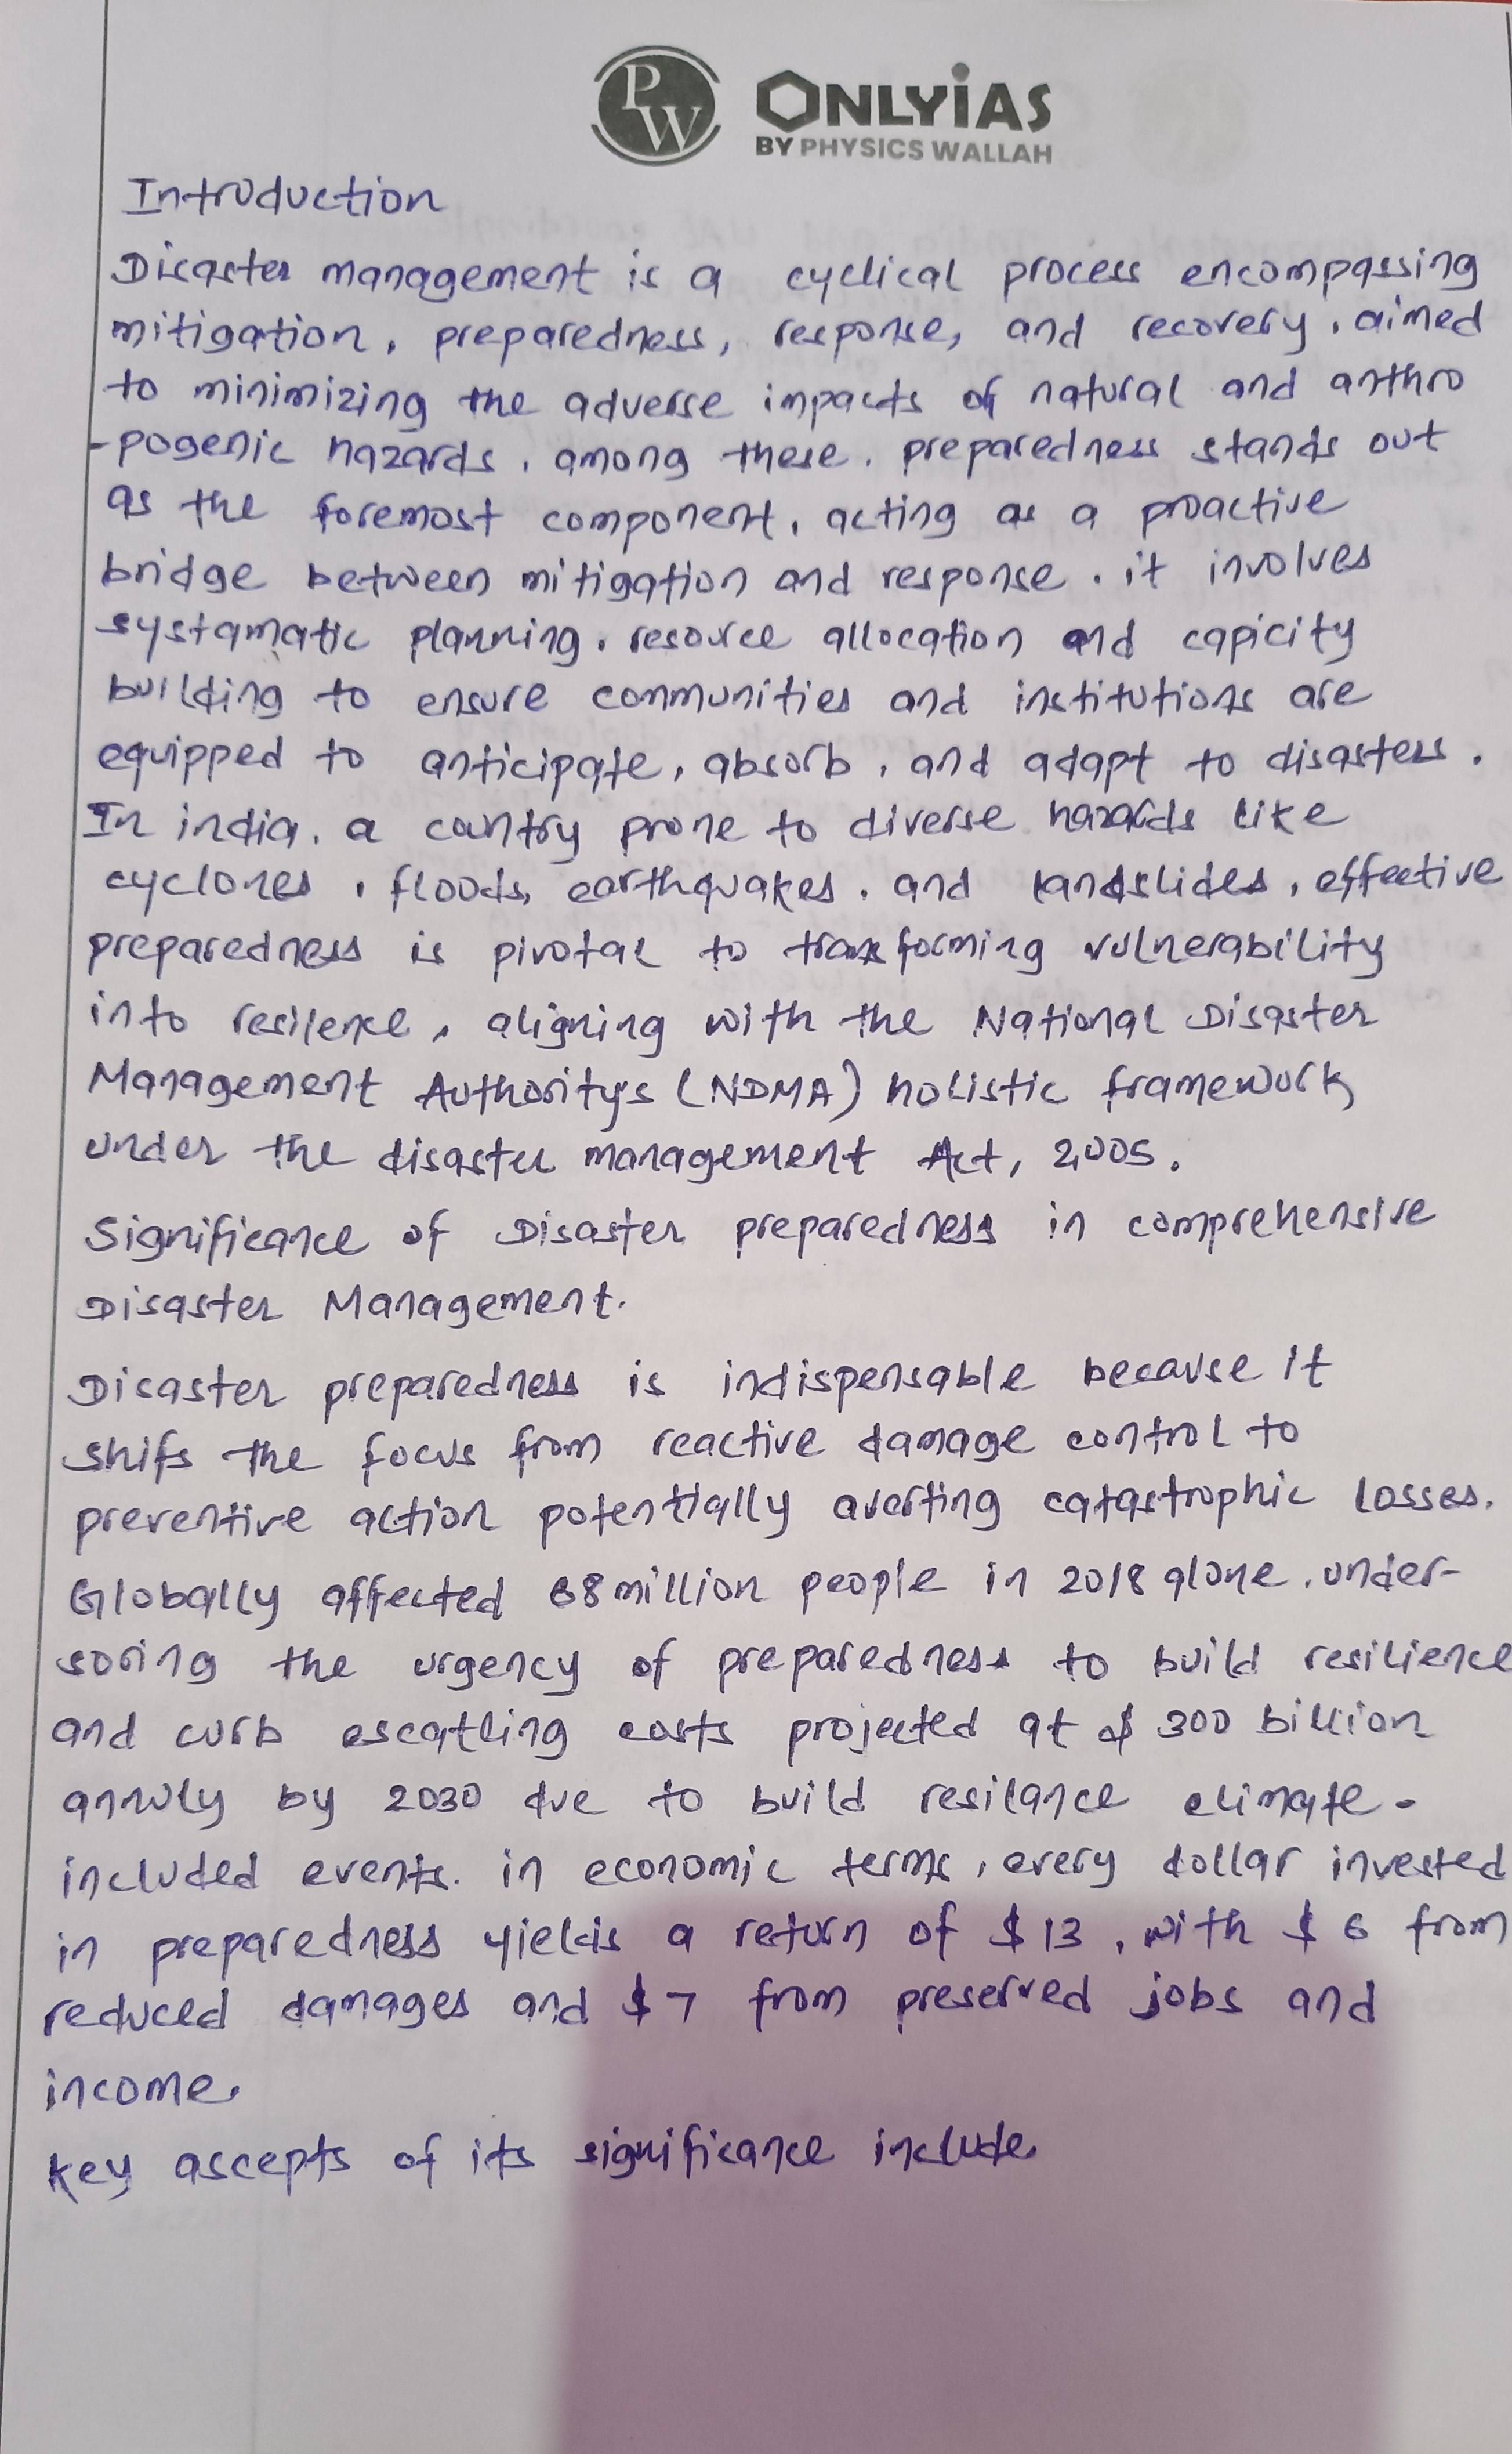 PW ONLYiAS
BY PHYSICS WALLAH
Introduction
Disaster management is a cyclical process encompassing
mitigation, preparedness, response, and recovery, aimed
to minimizing the adverse impacts of natural and anthro
-pogenic hazards, among these, preparedness stands out
as the foremost component, acting as a proactive
bridge between mitigation and response. it involves
systamatic planning, resource allocation and capicity
building to ensure communities and institutions are
equipped to anticipate, absorb, and adapt to disasters.
In india, a country prone to diverse hazards like
cyclones, floods, earthquakes, and landslides, effective
preparedness is pivotal to transforming vulnerability
into resilence, aligning with the National Disaster
Management Authority's (NDMA) holistic framework
under the disaster management Act, 2005.
Significance of Disaster preparedness in comprehensive
Disaster Management.
Disaster preparedness is indispensable because it
shifs the focus from reactive damage control to
preventive action potentially averting catastrophic losses.
Globally affected 68 million people in 2018 alone, under-
soring the urgency of preparedness to build resilience
and curb escatling costs projected at $ 300 billion
annuly by 2030 due to build resilance climate-
included events. in economic terms, every dollar invested
in preparedness yields a return of $ 13, with $ 6 from
reduced damages and $ 7 from preserved jobs and
income.
key ascepts of its significance include.